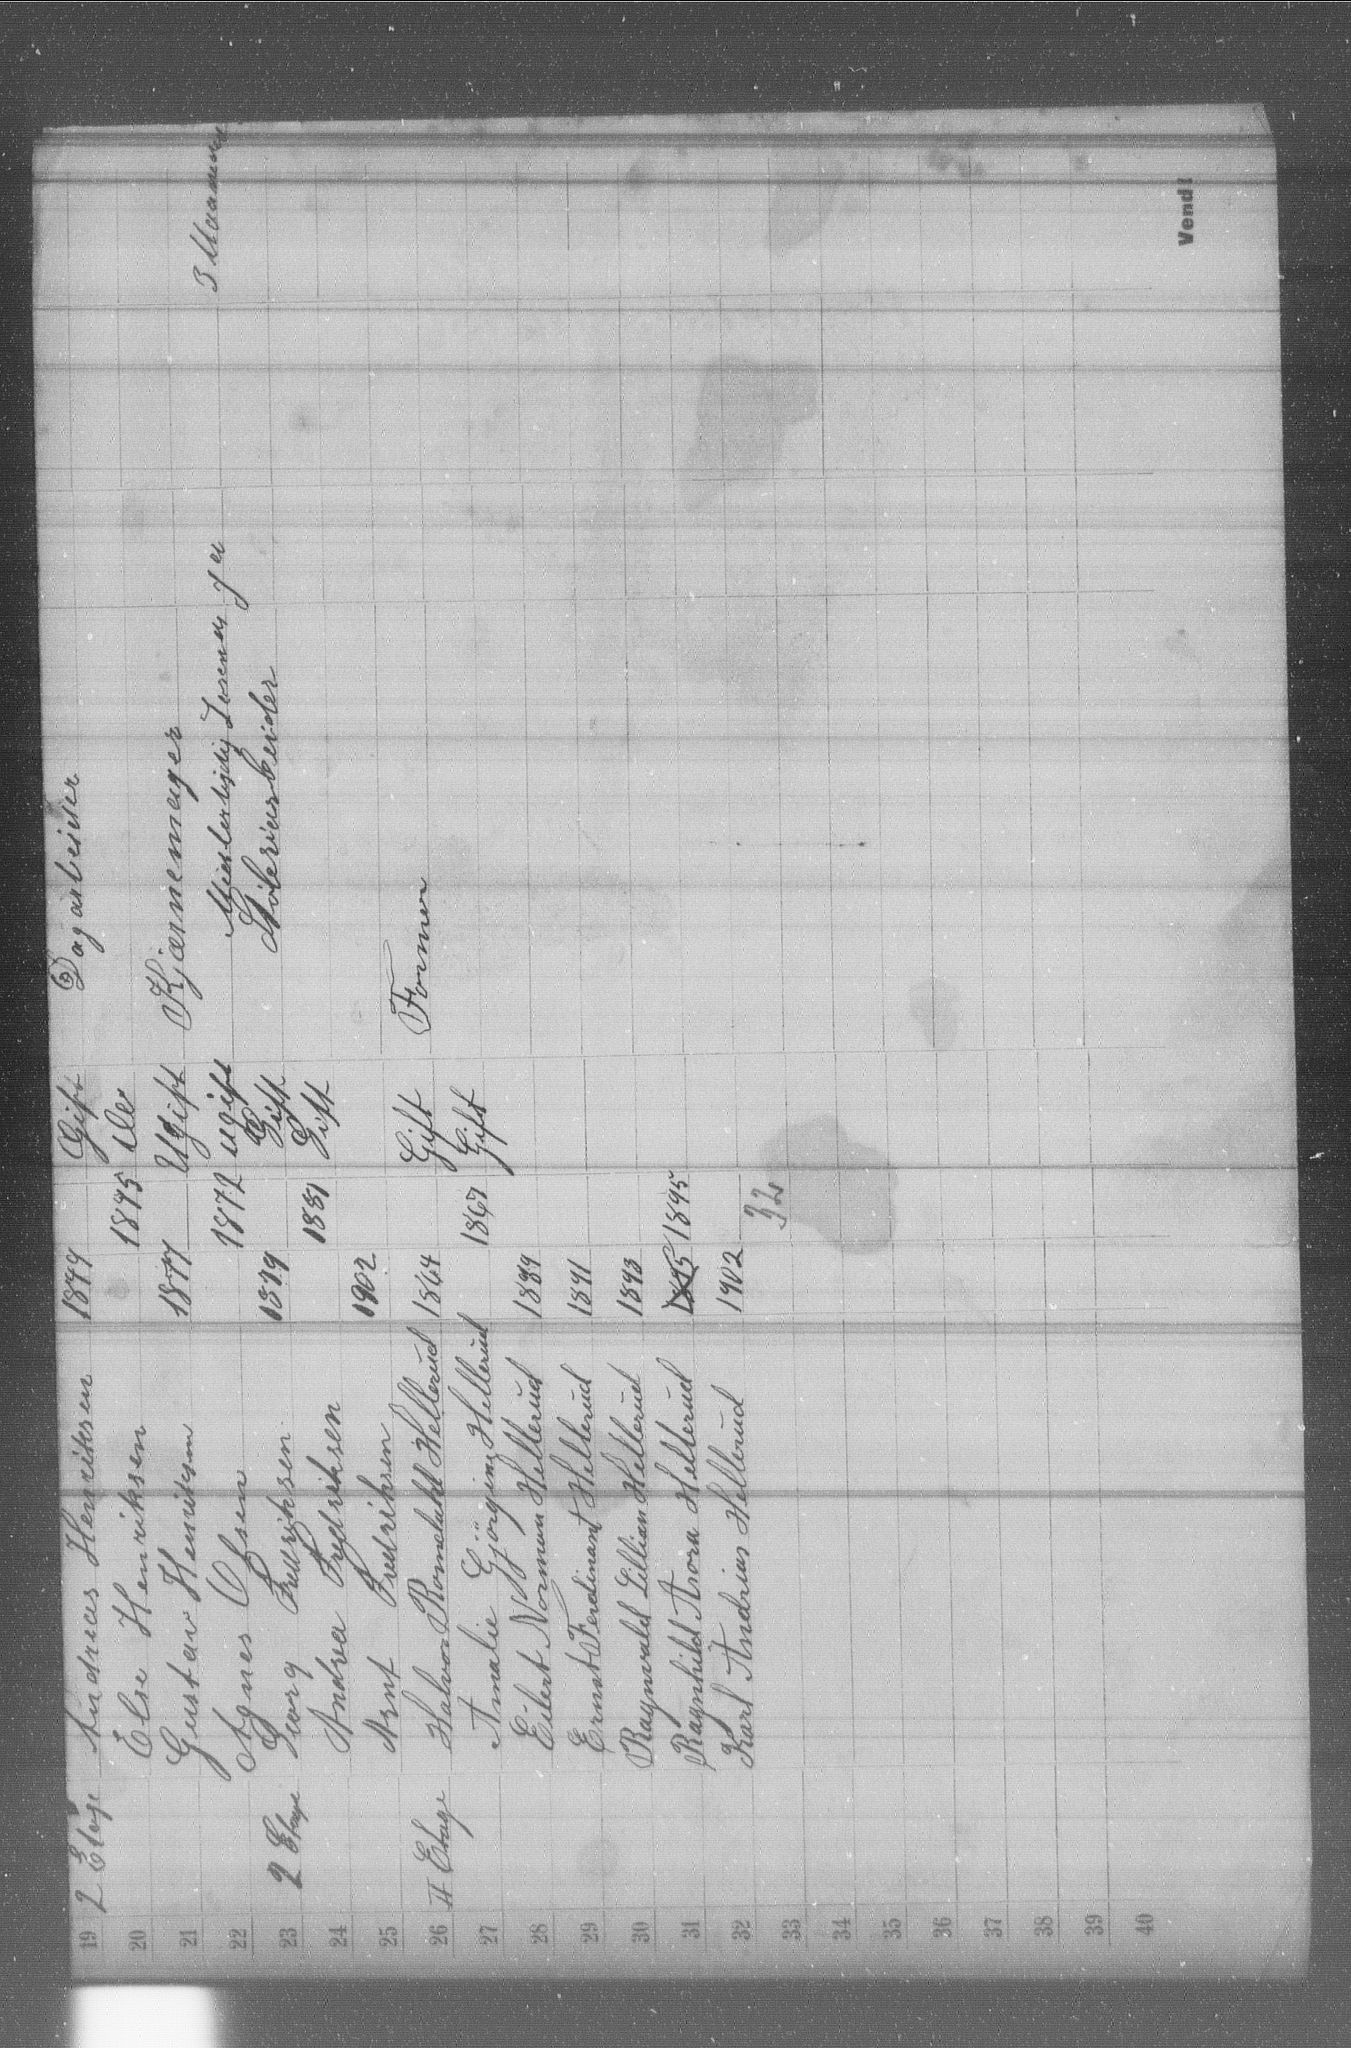 19 2 Etage Andreas Henriksen 1849 Gift Dagarbeider
20 Else Henriksen 1845 Do
21 Gustav Henriksen 1877 Ugift Kjørnemager
22 Agnes Olsen 1872 ugift 3 Maaneder
23 2 Etage Georg Fredriksen 1879 Gift Støberiarbeider
24 Andrea Fredriksen 1881 Gift
25 Arnt Fredriksen 1902
26 II Etage Halvor Romdahl Hellerud 1864 Gift Former
27 Amalie Gjörgine Hellerud 1867 Gift
28 Eilert Norman Hellerud 1889
29 Ernst Ferdinant Hellerud 1891
30 Raynvald Lillian Hellerud 1893
31 Raynhild Asora Hellerud 1895 1895
32 Karl Andrias Hellerud 1902
33 32
34
35
36
37
38
39
40
Vend!